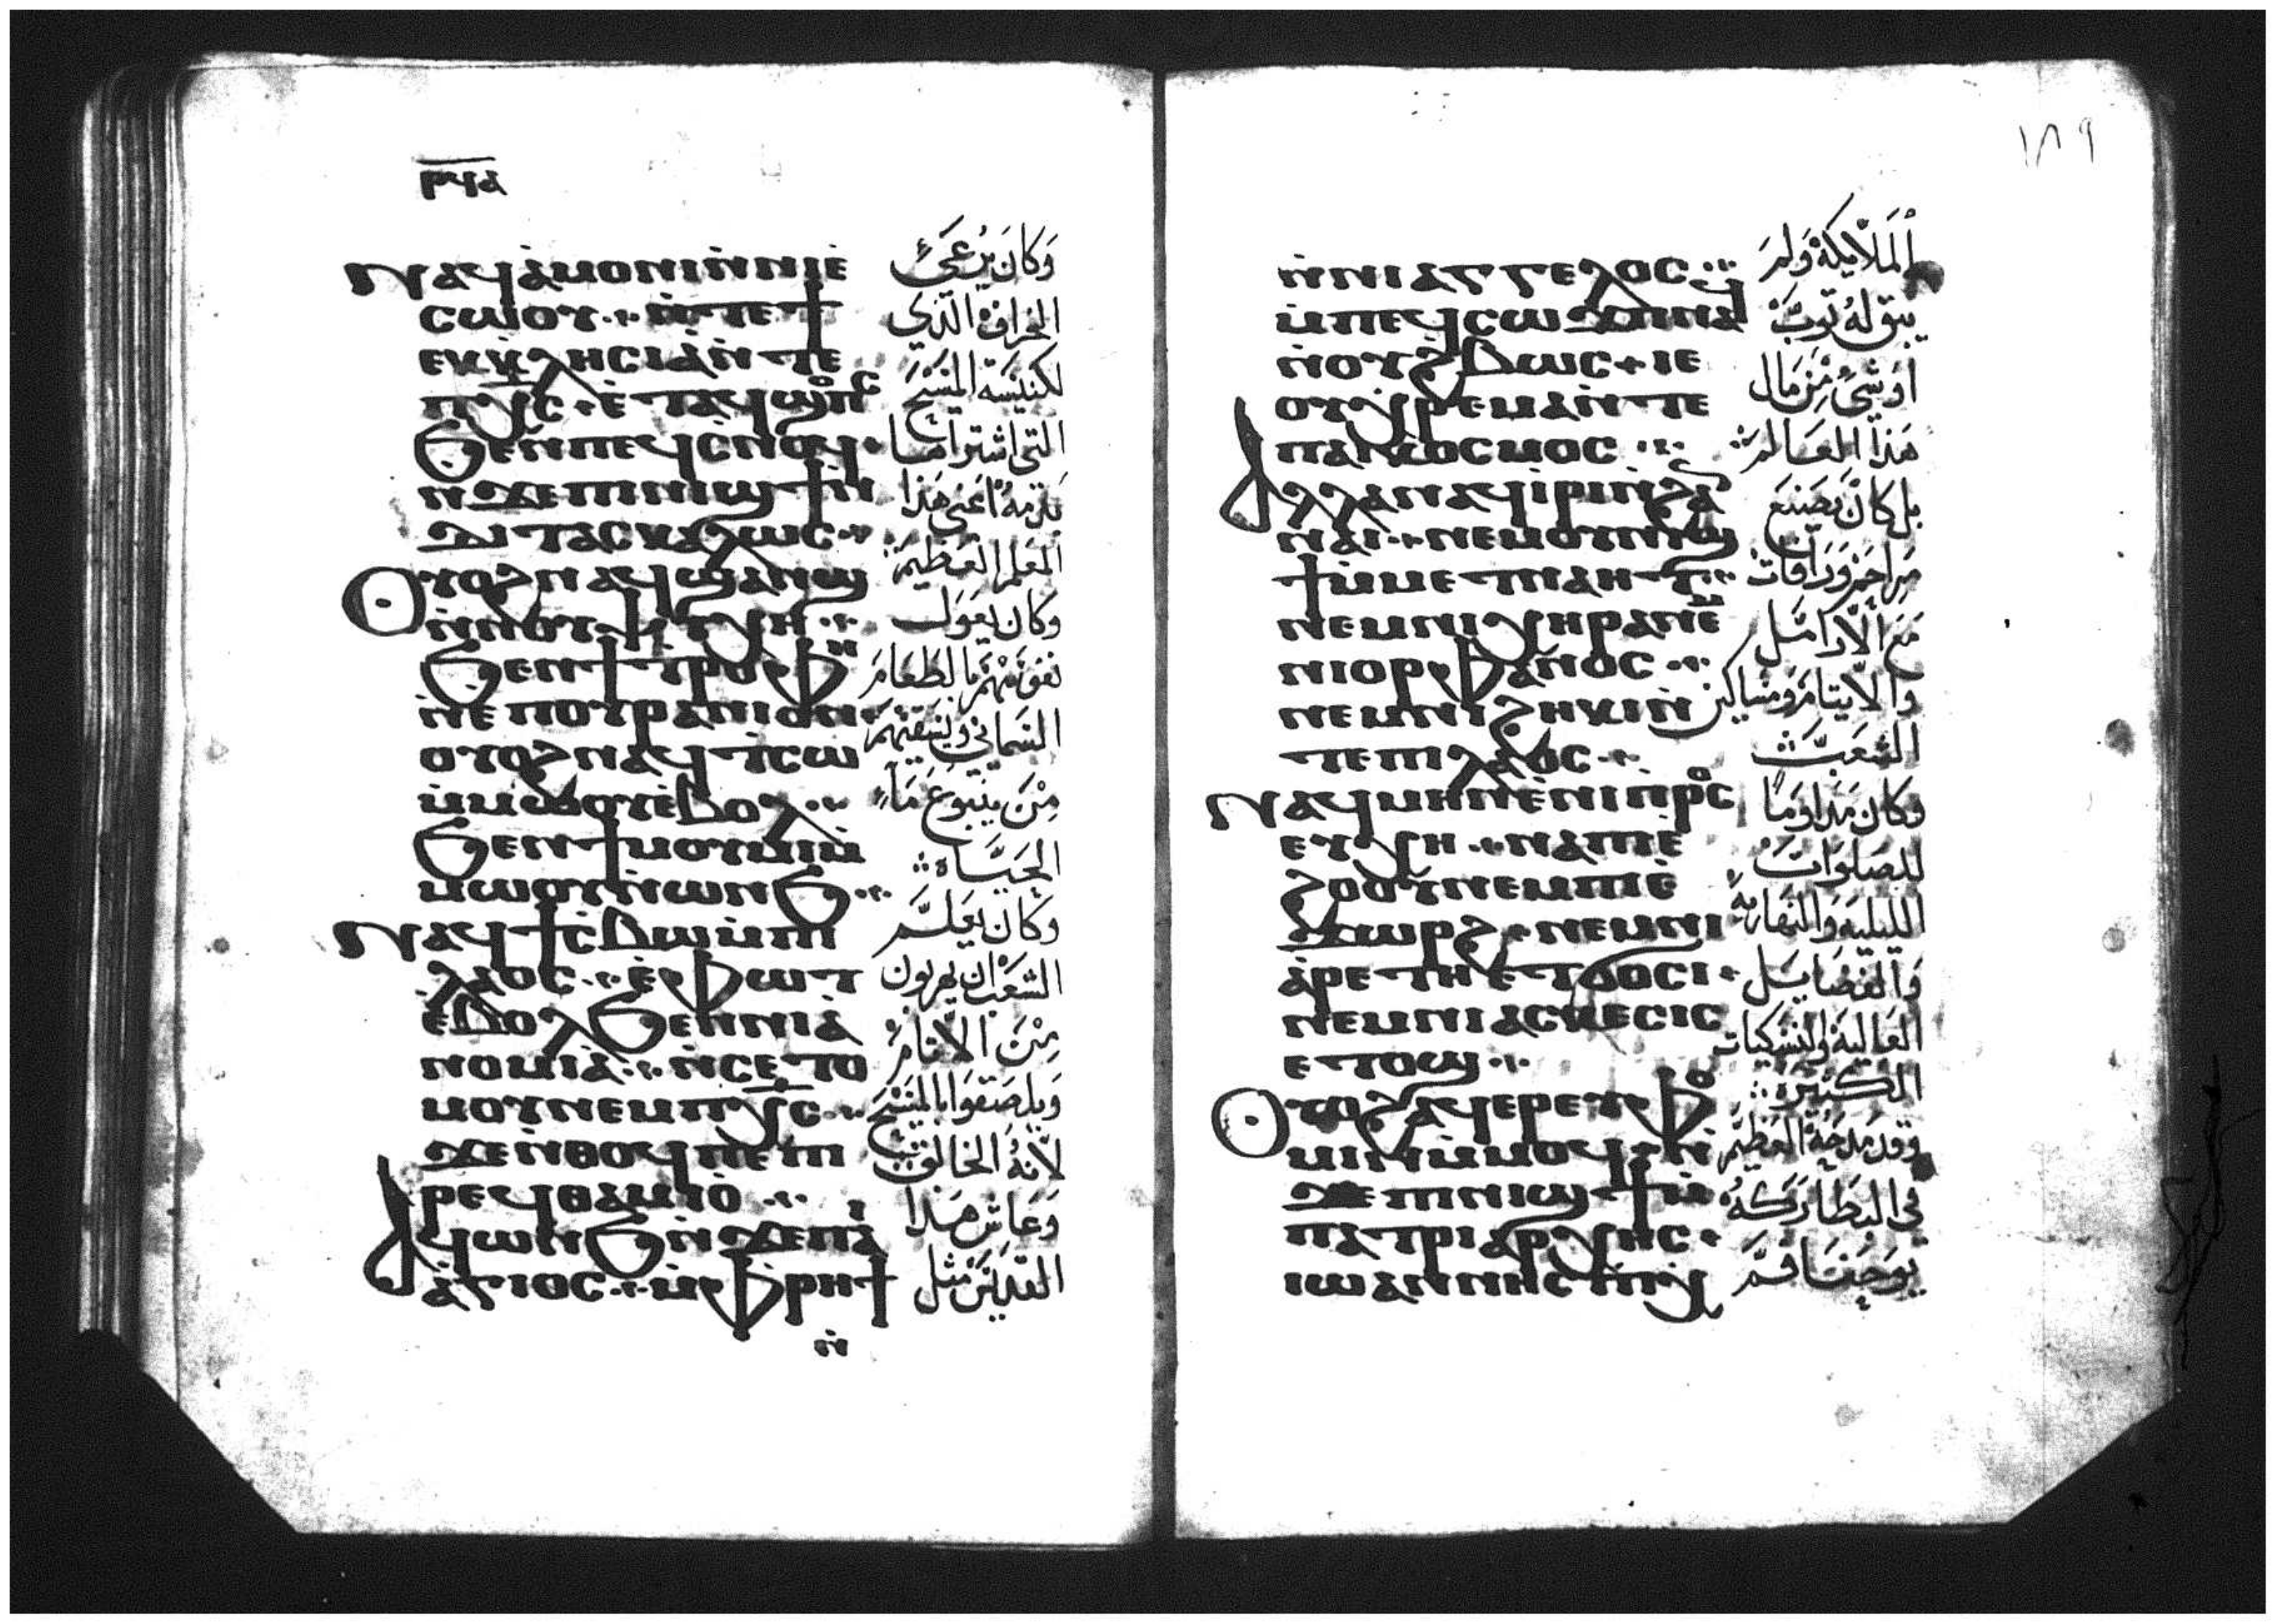 ⲣϥⲁ
ⲛⲁϥⲁ̀ⲙⲟⲛⲓⲛ̀ⲛⲓⲉ̀
ⲥⲱⲟⲩ ⲛ̀ⲧⲉϯ
ⲉⲕⲕⲗⲏⲥⲓⲁ ⲛ̀ⲧⲉ
ⲡⲭ̅ⲥ ⲉ̀ⲧⲁϥϣⲟⲡⲥ
ϧⲉⲛⲡⲉϥⲥⲛⲟϥ
ⲛϫⲉⲡⲓⲛⲓϣϯⲛ
ⲇⲓⲧⲁⲥⲕⲁⲗⲱⲥ
ⲟⲩⲟϩⲛⲁϥϣⲁⲛϣ
ⲛ̀ⲛⲟⲩⲯⲩⲭⲏ
ϧⲉⲛϯⲧⲣⲟⲫⲏ
ⲛ̀ⲉⲡⲟⲩⲣⲁⲛⲓⲟⲛ
ⲟⲩⲟϩⲛⲁϥⲧ̀ⲥⲱ
ⲙ̀ⲙⲱⲟⲩⲉ̀ⲃⲟⲗ
ϧⲉⲛϯⲙⲟⲩⲙⲓⲙ̀
ⲙⲱⲟⲩⲛ̀ⲱⲛϧ
ⲛⲁϥϯⲥⲃⲱⲙ̀ⲡⲓ
ⲗⲁⲟⲥ ⲉ̀ⲫⲱⲧ
ⲉⲃⲟⲗϧⲉⲛⲛⲓⲁ̀
ⲛⲟⲙⲓⲁ ⲛ̀ⲥⲉⲧⲟ
ⲙⲟⲩⲛⲉⲙⲡⲭ̅ⲥ
ϫⲉⲛ̀ⲑⲟϥⲡⲉⲡⲓ
ⲣⲉϥⲑⲁⲙⲓⲟ̀
ⲁϥⲱⲛϧⲛ̀ϫⲉⲡⲁⲓ
ⲁ̀ⲅⲓⲟⲥ ⲙ̀ⲫⲣⲏϯ
ⲛ̀
وَكانَ يَرعَىٰ
الخراف الذي
لكنيسة المسيح
التي اشتراها
بدمه اعني هذا
المعلم العظيم
وكان يعول
نفوسهم بالطعام
السماني ويسقيهم
من ينبوع ماء
الحياة
وكان يعلم
الشعب ان يهربون
من الاثام
ويلصقوا بالمسيح
لانه الخالق
وعاش هذا
القديس مثل
١٨٩
ⲛ̀ⲛⲓⲁⲅⲅⲉⲗⲟⲥ
ⲙ̀ⲡⲉϥⲥⲱϫⲡⲛⲁϥ
ⲛ̀ⲟⲩϩⲃⲱⲥ ⲓⲉ
ⲟⲩⲭⲣⲉⲙⲁⲛ̀ⲧⲉ
ⲡⲁⲓⲕⲟⲥⲙⲟⲥ
ⲁⲗⲗⲁⲛⲁϥⲓ̀ⲣⲓⲛ̀ϩⲁⲛ
ⲛⲁⲓ ⲛⲉⲙⲟⲩⲛⲓϣ
ϯⲙ̀ⲙⲉⲧⲛⲁⲏⲧ
ⲛⲉⲙⲛⲓⲭⲏⲣⲁⲛⲉⲙ
ⲛⲓⲟⲣⲫⲁⲛⲟⲥ
ⲛⲉⲙⲛⲓϩⲏⲕⲓⲛ̀
ⲧⲉⲡⲓⲗⲁⲟⲥ
ⲛⲁϥⲙⲏⲛⲉ̀ⲛⲓⲡⲣⲟⲥ
ⲉⲩⲭⲏ ⲛⲁⲡⲓⲉ̀
ϩⲟⲟⲩⲛⲉⲙⲡⲓⲉ̀
ϫⲱⲣϩ ⲛⲉⲙⲛⲓ
ⲁ̀ⲣⲉⲧⲏⲉⲧϭⲟⲥⲓ
ⲛⲉⲙⲛⲓⲁⲥⲕⲉⲥⲓⲥ
ⲉⲧⲟϣ
ⲟⲩⲟϩⲁϥⲉⲣⲉⲩⲫⲟ
ⲙⲓⲛⲙ̀ⲙⲟϥ ⲛ̀
ϫⲉⲡⲓⲛⲓϣϯⲙ̀
ⲡⲁⲧⲣⲓⲁⲣⲭⲏⲥ
ⲓⲱⲁⲛⲛⲏⲥⲡⲓⲭ
الملايكة ولم
يبق له ثوب
او شيء من مال
هذا العالم
بل كان يصنع
مراحم ورافات
مع الارامل
والايتام ومساكين
الشعب
وكان مداوما
للصلوات
الليلية والنهارية
والفضايل
العالية والنسكيات
الكثيرة
وقد مدحه العظيم
في البطاركة
يوحنا فم